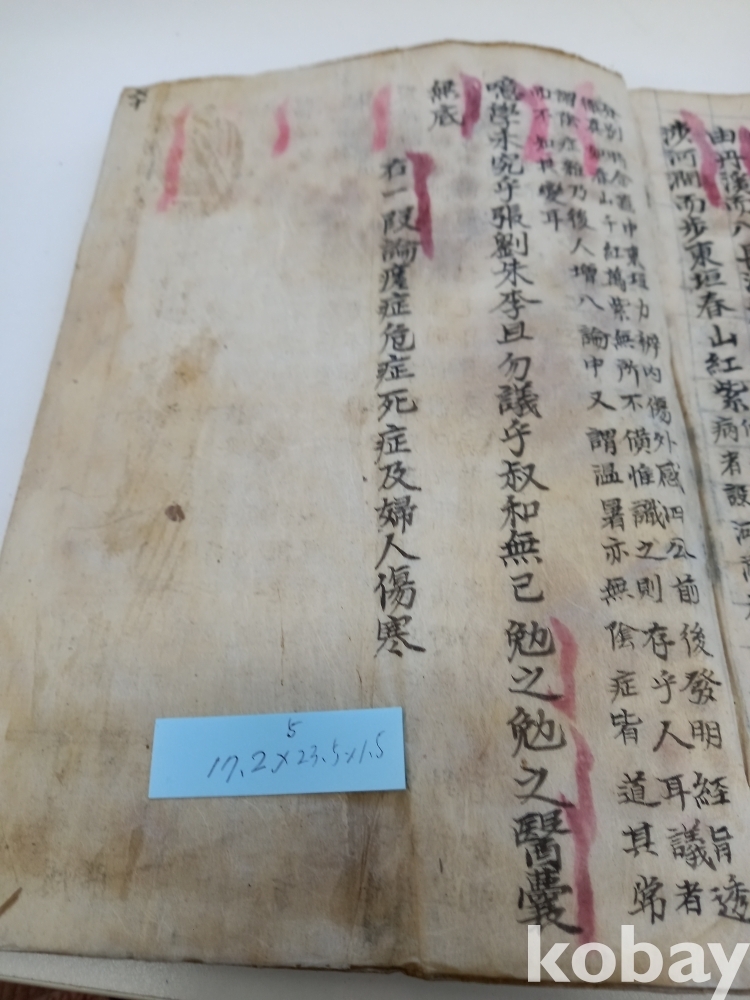 由丹溪而
涉河澗而步東垣春山紅紫
病者設河
中東垣力辨內傷外感四公前後發明經旨透
真如春山千紅萬紫無所不備惟識之則存乎人耳議者
謂陰症雜乃後人增入論中又謂溫暑亦無陰症皆道其常
而不知其變耳
噫學未究乎張劉朱李且勿議乎叔和無已勉之勉之醫囊
底
右一段論症危症死症及婦人傷寒
5
17.2×23.5×1.5
kobay